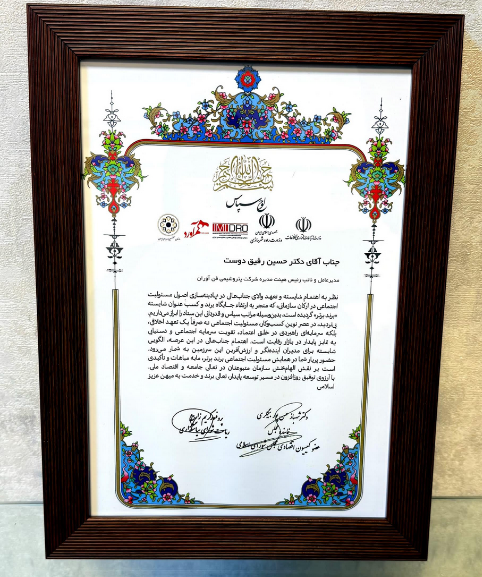 بسم الله الرحمن الرحیم
لوح سپاس
IMIDRO
جناب آقای دکتر حسین رفیق دوست
مدیرعامل و نائب رئیس هیئت مدیره شرکت پتروشیمی فن آوران
نظر به اهتمام شایسته و تعهد والای جنابعالی در پیاده‌سازی اصول مسئولیت
اجتماعی در ارکان سازمانی، که منجر به ارتقاء جایگاه برند و کسب عنوان شایسته
"برند برتر" گردیده است، بدین‌وسیله مراتب سپاس و قدردانی این ستاد را ابراز می‌داریم.
بی‌تردید، در عصر نوین کسب‌وکار، مسئولیت اجتماعی نه صرفاً یک تعهد اخلاقی،
بلکه سرمایه‌ای راهبردی در خلق اعتماد، تقویت سرمایه اجتماعی و دستیابی
به تمایز پایدار در بازار رقابت است. اهتمام جنابعالی در این عرصه، الگویی
شایسته برای مدیران آینده‌نگر و ارزش‌آفرین این سرزمین به شمار می‌رود.
حضور پربار شما در همایش مسئولیت اجتماعی برند برتر، مایه مباهات و تأکیدی
است بر نقش الهام‌بخش سازمان متبوعتان در تعالی جامعه و اقتصاد ملی.
با آرزوی توفیق روزافزون در مسیر توسعه پایدار، تعالی برند و خدمت به میهن عزیز
اسلامی